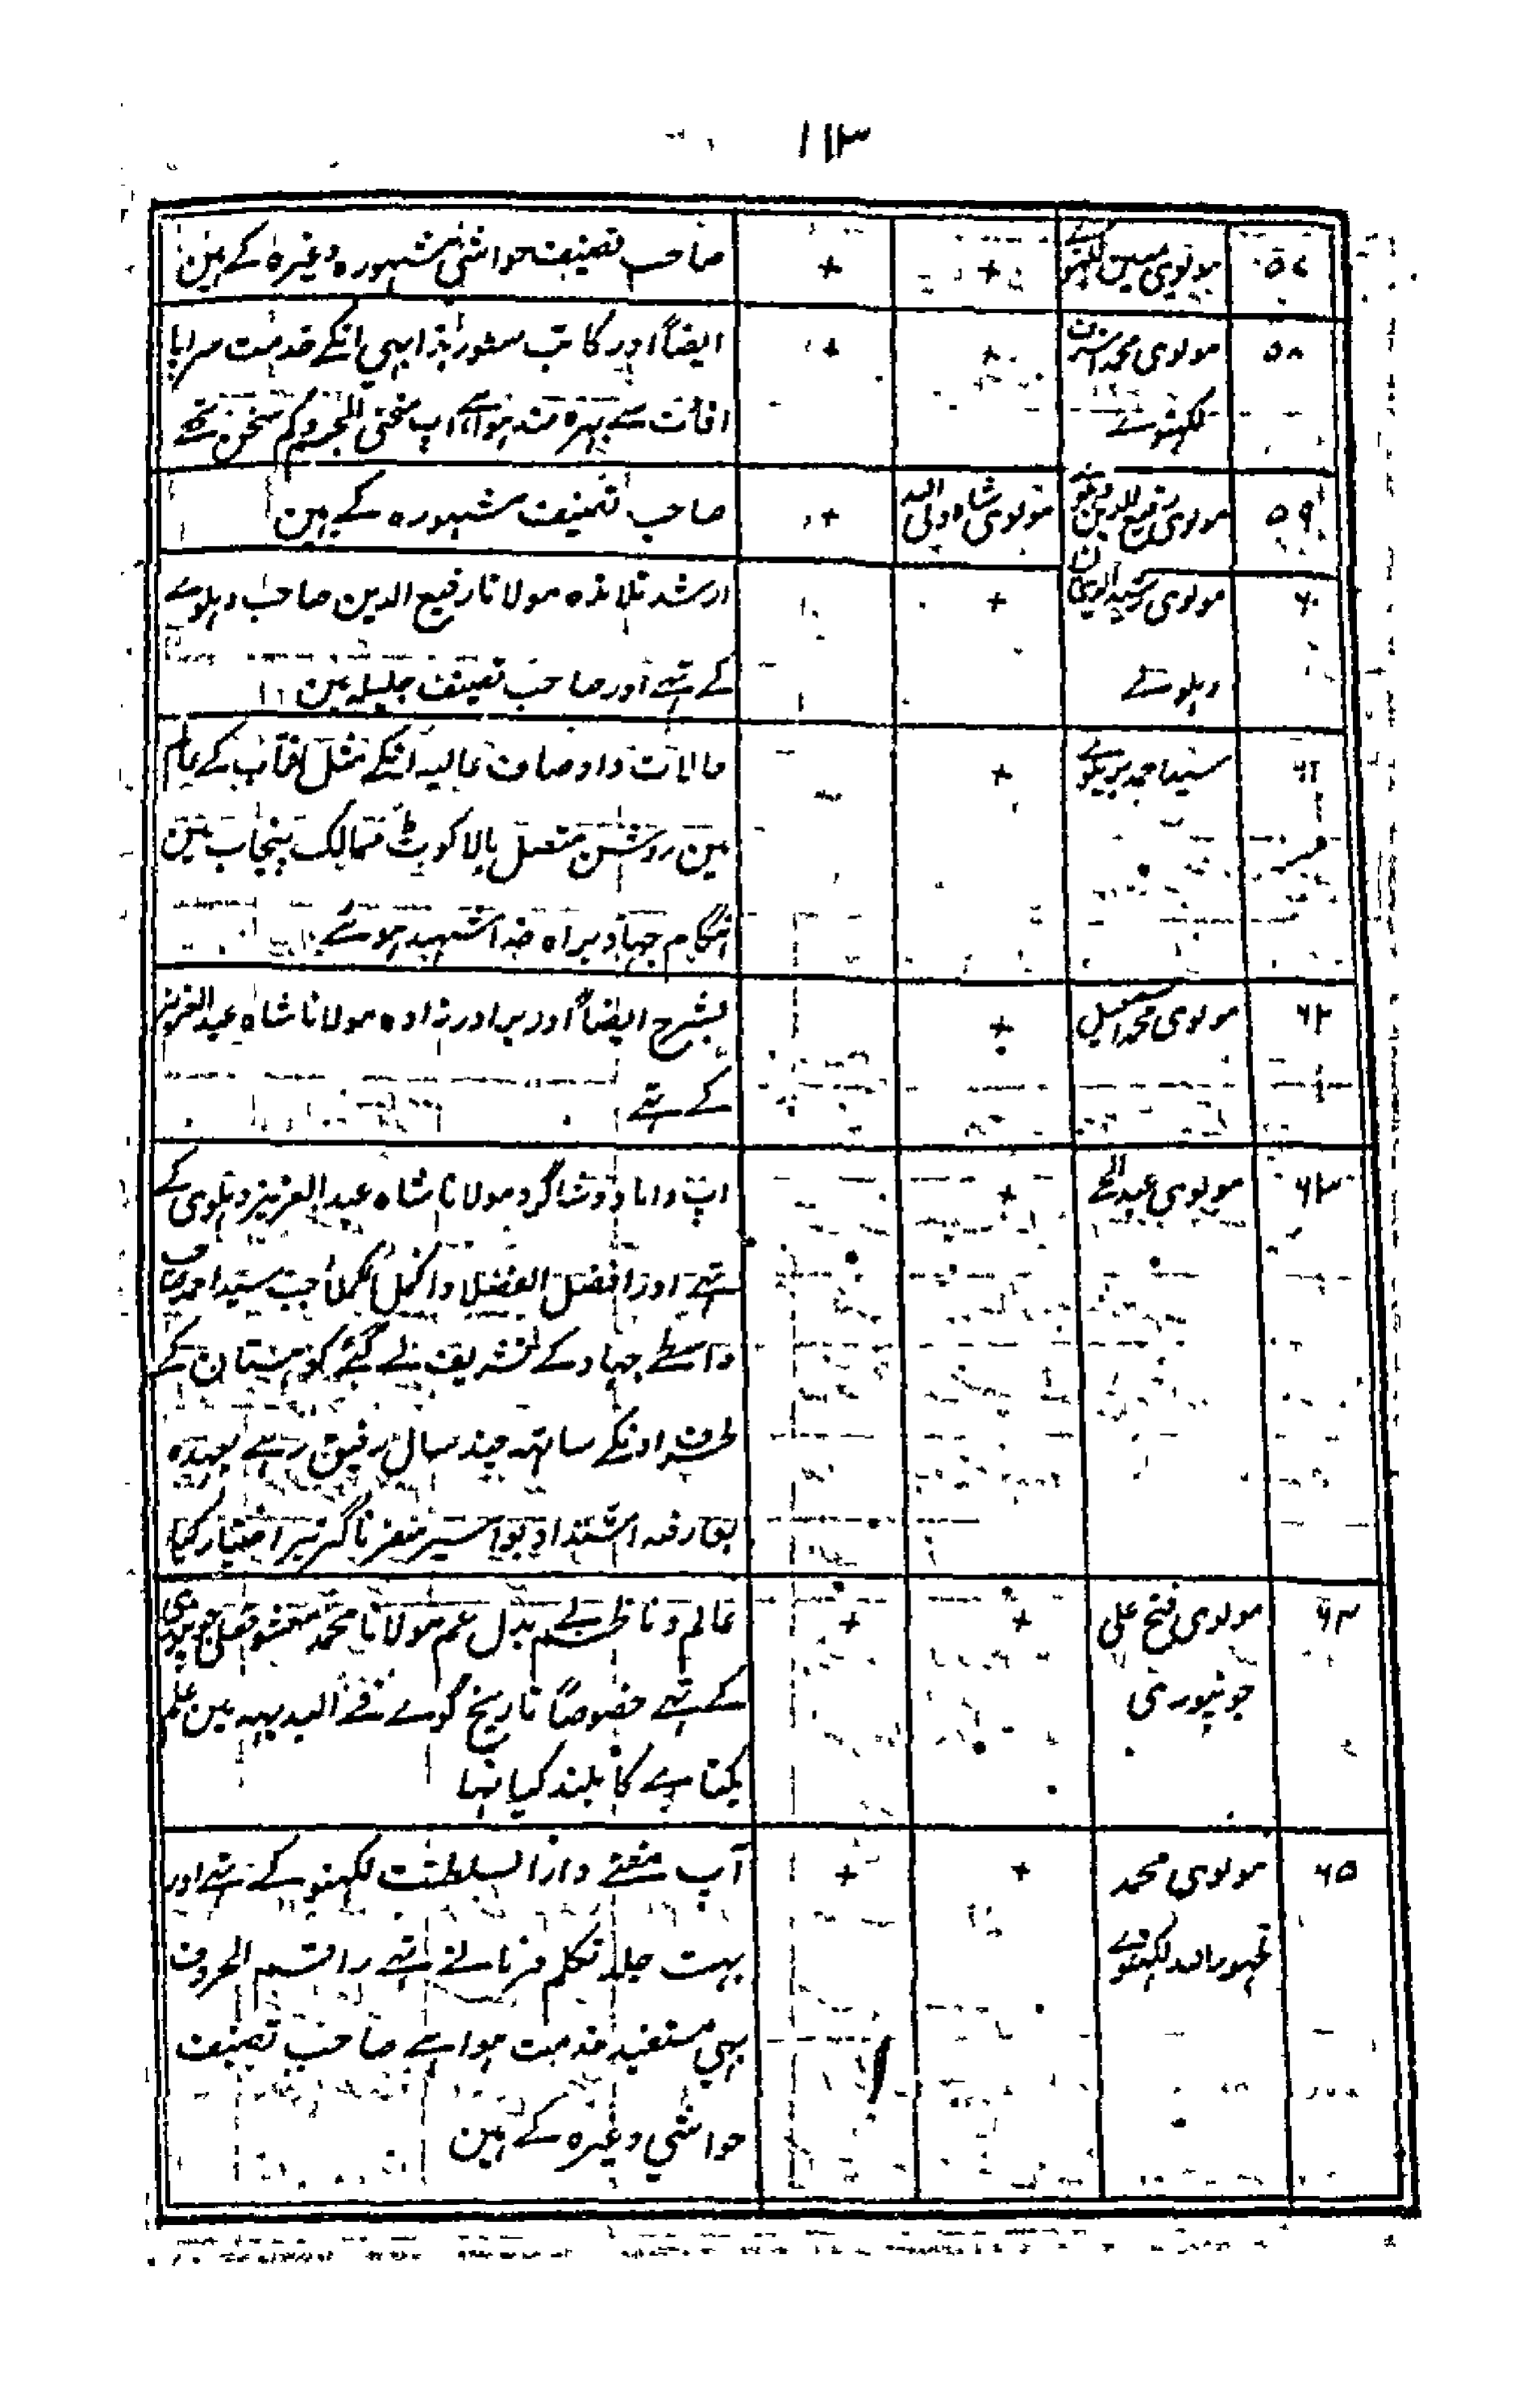 ۱۱۳
۵۷ مولوی مبین لکہنوے + + صاحب تصنیف حواشی مشہورہ وغیرہ کے ہین
۵۸ مولوی محمد اشرف + + ایضاً اور کاتب سطور ہذا بہی انکے خدمت سراپا
لکہنوے افادت سے بہرہ مند ہوا ہے اپ منحنی الجسم و کم سخن تہے
۵۹ مولوی رفیع الدین دہلوے مولوی شاہ ولی اللہ + صاحب تصنیف مشہورہ کے ہین
۶۰ مولوی رشید الدین خان + ارشد تلامذہ مولانا رفیع الدین صاحب دہلوے
دہلوے کے تہے اور صاحب تصنیف جلیلہ ہین
۶۱ سید احمد بریلوے + حالات و اوصاف عالیہ انکے مثل افتاب کے عالم
مین روشن متصل بالا کوٹ ممالک پنجاب مین
ہنگام جہاد براہ خدا شہید ہوئے
۶۲ مولوی محمد اسمعیل + بشرح ایضاً اور برادر زادہ مولانا شاہ عبد العزیز
کے تہے
۶۳ مولوی عبد الحے + اپ داماد و شاگرد مولانا شاہ عبد العزیز دہلوی کے
تہے اور افضل الفضلا و اکمل الکملا جب سید احمد صاحب
واسطے جہاد کے تشریف لے گئے کوہستان کے
طرف اونکے ساتہہ چند سال رفیق رہے بعدہ
بعارضہ اشتداد بواسیر سفر ناگزیر اختیار کیا
۶۴ مولوی فتح علی + + عالم و ناظم بے بدل عم مولانا محمد معشوق علی جونپوری
جونپوری کے تہے خصوصاً تاریخ گوے فے البدیہہ مین علم
یکتاے کا بلند کیا تہا
۶۵ مولوی محمد + + آپ مفتے دار السلطنت لکہنو کے تہے اور
ظہور اللہ لکہنوے بہت جلد تکلم فرماتے تہے راقم الحروف
بہی مستفید خدمت ہوا ہے صاحب تصنیف
حواشی وغیرہ کے ہین